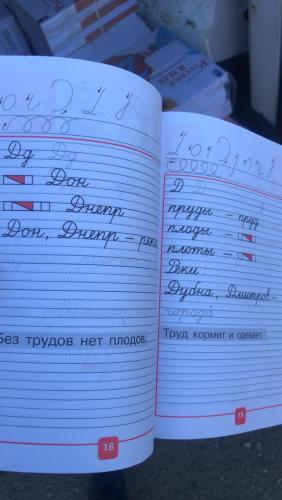 Дд Дд
Дон
Днепр
Дон, Днепр – реки
Без трудов нет плодов.
18
Д Д
пруды – пруд
плоды –
плоты –
Реки
Дубна, Дмитров –
города
Труд кормит и одевает.
19